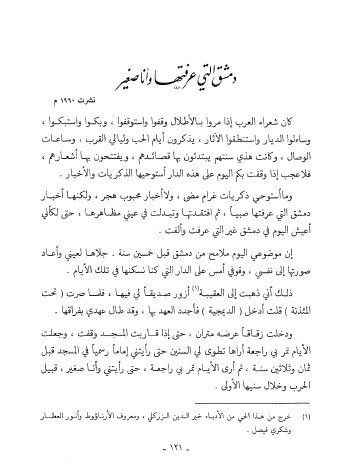 دمشق التي عرفتها وأنا صغير
نشرت ١٩٦٠ م
كان شعراء العرب إذا مروا بالأطلال وقفوا واستوقفوا ، وبكوا واستبكوا ،
وساءلوا الديار واستنطقوا الآثار ، يذكرون أيام الحب وليالي القرب ، وساعات
الوصال ، وكانت هذي سنتهم يبتدئون بها قصائدهم ، ويفتتحون بها أشعارهم ،
فلا عجب إذا وقفت بكم اليوم على هذه الدار أستوحيها الذكريات والأخبار .
وما أستوحي ذكريات غرام مضى ، ولا أخبار محبوب هجر ، ولكنها أخبار
دمشق التي عرفتها صبياً ، ثم افتقدتها وتبدلت في عيني مظاهرها ، حتى لكأني
أعيش اليوم في دمشق غير التي عرفت وألفت .
إن موضوعي اليوم ملامح من دمشق قبل خمسين سنة . جلاها لعيني وأعاد
صورتها إلى نفسي ، وقوفي أمس على الدار التي كنا نسكنها في تلك الأيام .
ذلك أني ذهبت إلى العقيبة (١) أزور صديقاً لي فيها ، فلما صرت ( تحت
المئذنة ) قلت أدخل ( الديمجية ) فأجدد العهد بها ، وقد طال عهدي بفراقها .
ودخلت زقاقاً عرضه متران ، حتى إذا قاربت المسجد وقفت ، وجعلت
الأيام تمر بي راجعة أراها تطوى لي السنين حتى رأيتني إماماً رسمياً في المسجد قبل
ثمان وثلاثين سنة ، ثم أرى الأيام تمر بي راجعة ، حتى رأيتني وأنا صغير ، قبيل
الحرب وخلال سنيها الأولى .
(١) خرج من هذا الحي من الأدباء خير الدين الزركلي ، ومعروف الأرناؤوط وأنور العطار
وشكري فيصل .
- ١٢١ -